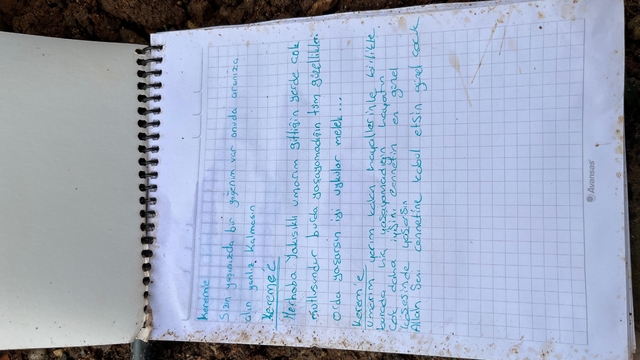 Kerem'e
Sizin yanınızda bir yiğenim var onuda aranıza
alın yanlız kalmasın
Kerem'e
Merhaba Yakışıklı umarım gittiğin yerde çok
mutlusundur burda yaşayamadığın tüm güzellikleri
Orda yaşarsın iyi uykular melek...
Kerem'e
Umarım yarım kalan hayallerinle birlikte
burada hiç yaşayamadığın hayatın
çok daha iyisini Cennetin en güzel
köşesinde yaşarsın
Allah Seni cennetine kabul etsin güzel çocuk
Avansas